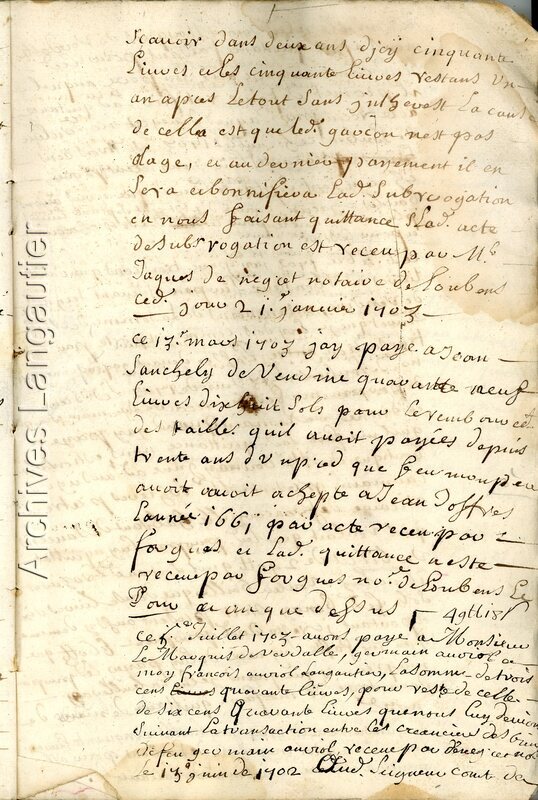 scavoir dans deux ans d'jcÿ cinquante
livres et les cinquante livres restans un
an apres le tout sans jntherest la cause
de cella est que led. garçon nest pas
dage, et au dernier payement il en
sera et bonnifiera lad. subrogation
en nous faisant quittance lad. acte
de subrogation est receu par Me
Jaques de negret notaire de Loubens
ced. jour 21e janvier 1703
ce 13e mars 1703 jay payé a Jean
Sanchely de Vendine quarante neuf
livres dix huit sols pour le rembourcet
des tailles quil avoit payées depuis
trente ans dun pred que feu mon pere
avoit avoit achepté a Jean Doffres
lannée 1661 par acte receu par
forgues et lad. quittance a este
receue par forgues nore de Loubens le
jour et an que dessus 49ll 18s
ce Juillet 1703 avons payé a Monsieur
Le Marquis de Verdalle, germain auriol et
moy françois auriol Langautier, la somme de trois
cens livres quarante livres, pour reste de celle
de six cens quarante livres que nous luy devions
suivant la transaction entre les creanciers des biens
de feu germain auriol, receue par
le 13e juin de 1702 dud. seigneur comte de
Archives Langautier